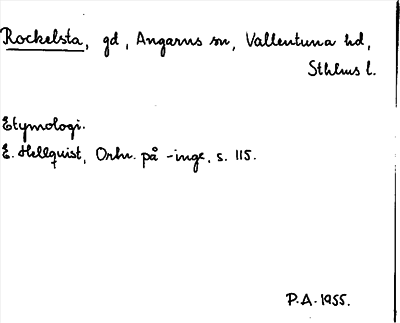 Rockelsta, gd, Angarns sn, Vallentuna hd,
Sthlms l.
Etymologi.
E. Hellquist, Ortn. på -inge, s. 115.
P.A. 1955.